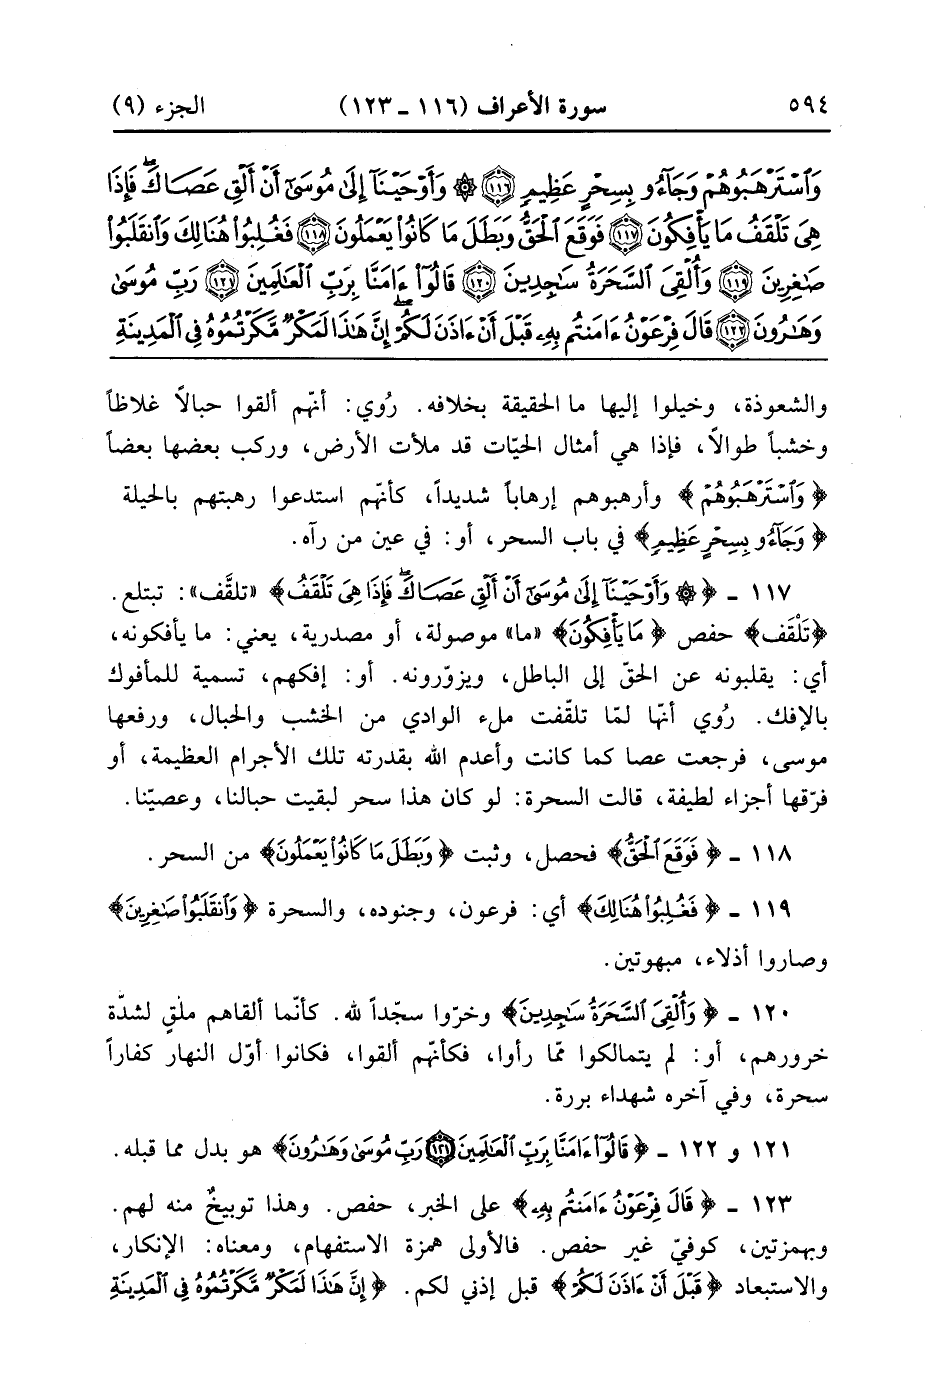 ٥٩٤ سورة الأعراف (١١٦ ـ ١٢٣) الجزء (٩)
وَٱسۡتَرۡهَبُوهُمۡ وَجَآءُو بِسِحۡرٍ عَظِيمٖ ١١٦ ۞ وَأَوۡحَيۡنَآ إِلَىٰ مُوسَىٰٓ أَنۡ أَلۡقِ عَصَاكَۖ فَإِذَا
هِيَ تَلۡقَفُ مَا يَأۡفِكُونَ ١١٧ فَوَقَعَ ٱلۡحَقُّ وَبَطَلَ مَا كَانُواْ يَعۡمَلُونَ ١١٨ فَغُلِبُواْ هُنَالِكَ وَٱنقَلَبُواْ
صَٰغِرِينَ ١١٩ وَأُلۡقِيَ ٱلسَّحَرَةُ سَٰجِدِينَ ١٢٠ قَالُوٓاْ ءَامَنَّا بِرَبِّ ٱلۡعَٰلَمِينَ ١٢١ رَبِّ مُوسَىٰ
وَهَٰرُونَ ١٢٢ قَالَ فِرۡعَوۡنُ ءَامَنتُم بِهِۦ قَبۡلَ أَنۡ ءَاذَنَ لَكُمۡۖ إِنَّ هَٰذَا لَمَكۡرٞ مَّكَرۡتُمُوهُ فِي ٱلۡمَدِينَةِ
والشعوذة، وخيلوا إليها ما الحقيقة بخلافه. رُوي: أنّهم ألقوا حبالاً غلاظاً
وخشباً طوالاً، فإذا هي أمثال الحيّات قد ملأت الأرض، وركب بعضها بعضاً
﴿وَٱسۡتَرۡهَبُوهُمۡ﴾ وأرهبوهم إرهاباً شديداً، كأنّهم استدعوا رهبتهم بالحيلة
﴿وَجَآءُو بِسِحۡرٍ عَظِيمٖ﴾ في باب السحر، أو: في عين من رآه.
١١٧ ـ ﴿۞ وَأَوۡحَيۡنَآ إِلَىٰ مُوسَىٰٓ أَنۡ أَلۡقِ عَصَاكَۖ فَإِذَا هِيَ تَلۡقَفُ﴾ «تلقَّف»: تبتلع.
﴿تَلْقَف﴾ حفص ﴿مَا يَأۡفِكُونَ﴾ «ما» موصولة، أو مصدرية، يعني: ما يأفكونه،
أي: يقلبونه عن الحقّ إلى الباطل، ويزوّرونه. أو: إفكهم، تسمية للمأفوك
بالإفك. رُوي أنّها لمّا تلقّفت ملء الوادي من الخشب والحبال، ورفعها
موسى، فرجعت عصا كما كانت وأعدم الله بقدرته تلك الأجرام العظيمة، أو
فرّقها أجزاء لطيفة، قالت السحرة: لو كان هذا سحر لبقيت حبالنا، وعصيّنا.
١١٨ ـ ﴿فَوَقَعَ ٱلۡحَقُّ﴾ فحصل، وثبت ﴿وَبَطَلَ مَا كَانُواْ يَعۡمَلُونَ﴾ من السحر.
١١٩ ـ ﴿فَغُلِبُواْ هُنَالِكَ﴾ أي: فرعون، وجنوده، والسحرة ﴿وَٱنقَلَبُواْ صَٰغِرِينَ﴾
وصاروا أذلاء، مبهوتين.
١٢٠ ـ ﴿وَأُلۡقِيَ ٱلسَّحَرَةُ سَٰجِدِينَ﴾ وخرّوا سجّداً لله. كأنّما ألقاهم ملقٍ لشدّة
خرورهم، أو: لم يتمالكوا ممّا رأوا، فكأنّهم ألقوا، فكانوا أوّل النهار كفاراً
سحرة، وفي آخره شهداء بررة.
١٢١ و ١٢٢ ـ ﴿قَالُوٓاْ ءَامَنَّا بِرَبِّ ٱلۡعَٰلَمِينَ ١٢١ رَبِّ مُوسَىٰ وَهَٰرُونَ﴾ هو بدل مما قبله.
١٢٣ ـ ﴿قَالَ فِرۡعَوۡنُ ءَامَنتُم بِهِۦ﴾ على الخبر، حفص. وهذا توبيخٌ منه لهم.
وبهمزتين، كوفيّ غير حفص. فالأولى همزة الاستفهام، ومعناه: الإنكار،
والاستبعاد ﴿قَبۡلَ أَنۡ ءَاذَنَ لَكُمۡ﴾ قبل إذني لكم. ﴿إِنَّ هَٰذَا لَمَكۡرٞ مَّكَرۡتُمُوهُ فِي ٱلۡمَدِينَةِ